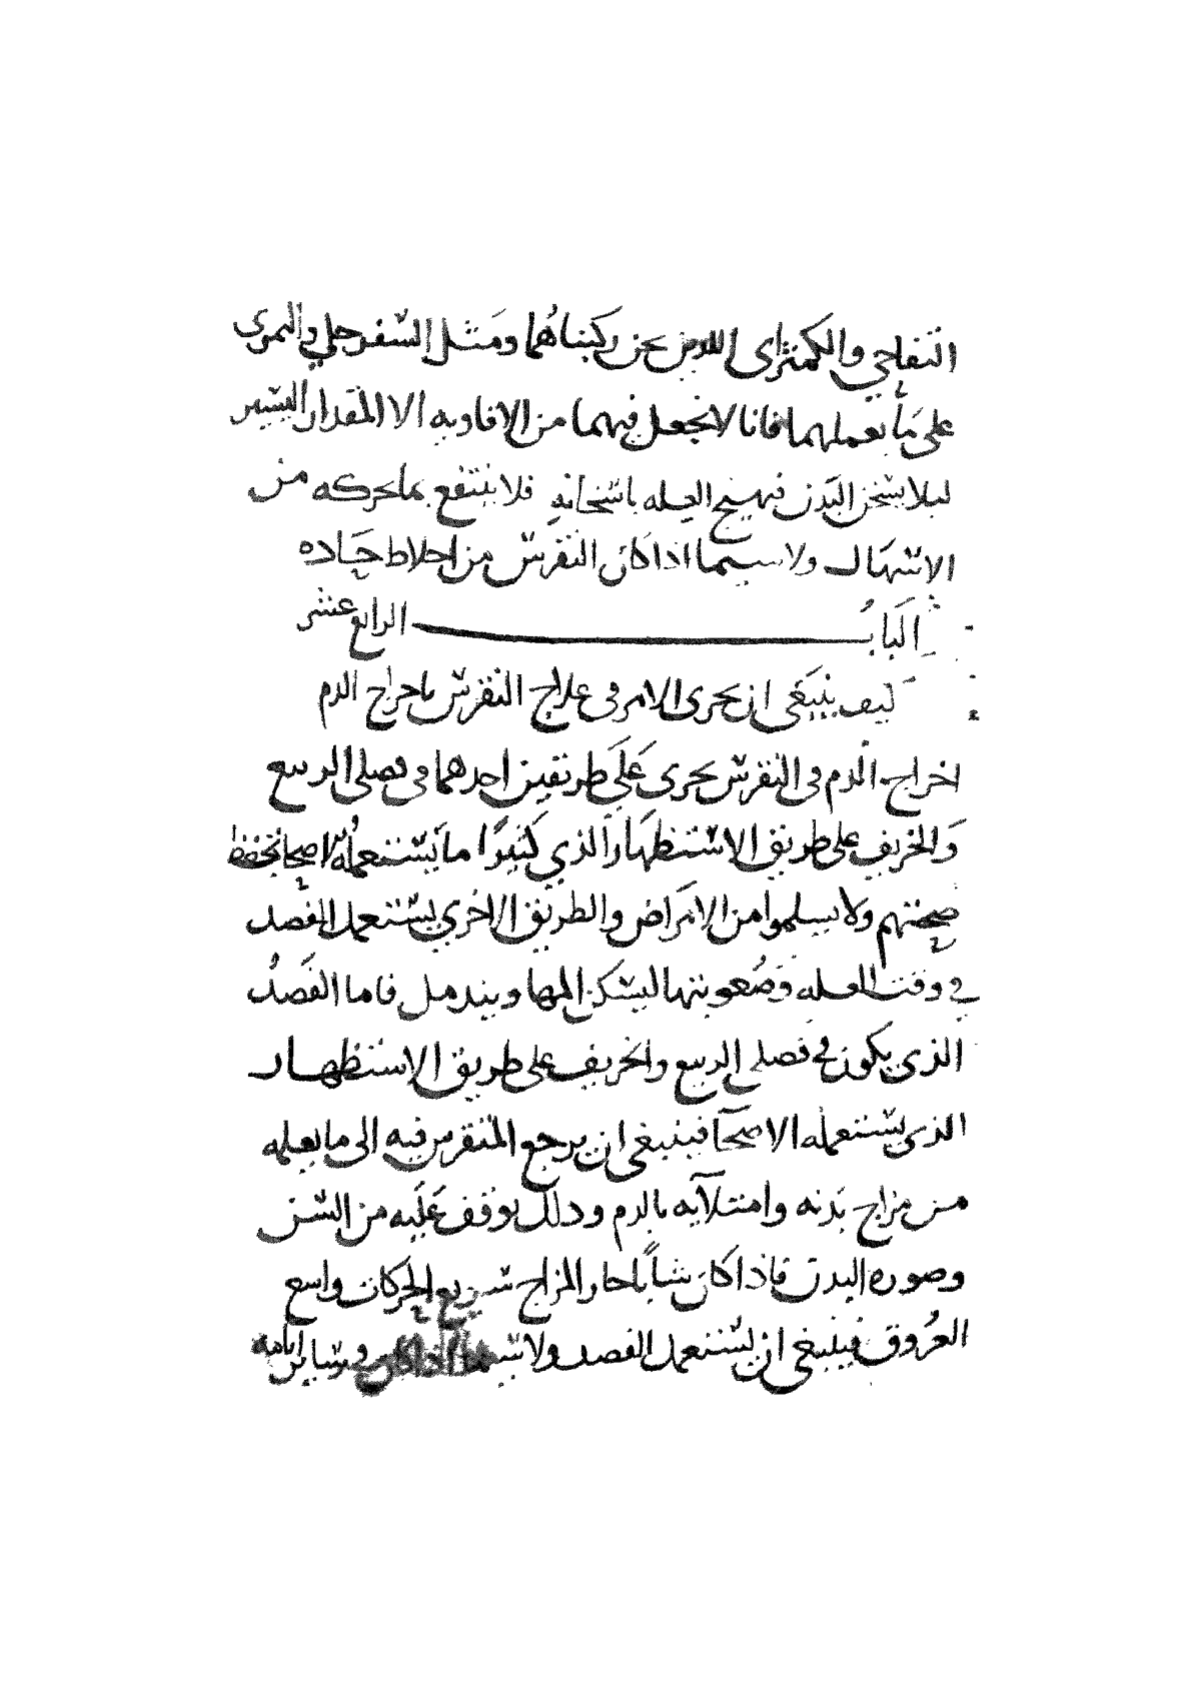 التفاحي والكمثراى اللذين نحن ركبناهما ومثل السفرجلي والتمري
على ما نعملهما فانا لا نجعل فيهما من الافاويه الا المقدار اليسير
ليلا يسخن البدن فيهيج العله باسخانه فلا ينتفع بما يحركه من
الاسهال ولا سيما اذا كان النقرس من اخلاط حاده
الباب الرابع عشر
كيف ينبغي ان يجرى الامر في علاج النقرس باخراج الدم
اخراج الدم في النقرس يجرى على طريقين احدهما في فصلى الربيع
والخريف على طريق الاستظهار الذي كثيرًا ما يستعمله الاصحا لتحفظ
صحتهم ولا يسلموا من الامراض والطريق الاخرى يستعمل الفصد
في وقت العله وصعوبتها ليسكن المها ويندمل فاما الفصد
الذى يكون في فصلى الربيع والخريف على طريق الاستظهار
الذى يستعمله الاصحآ فينبغى ان يرجع المنقرس فيه الى ما يعلمه
من مزاج بدنه وامتلآيه بالدم وذلك يوقف عليه من السن
وصوره البدن فاذا كان شابًا حار المزاج سريع الحركات واسع
العروق فينبغي ان يستعمل الفصد ولا سيما اذا كان في ساير ايامه